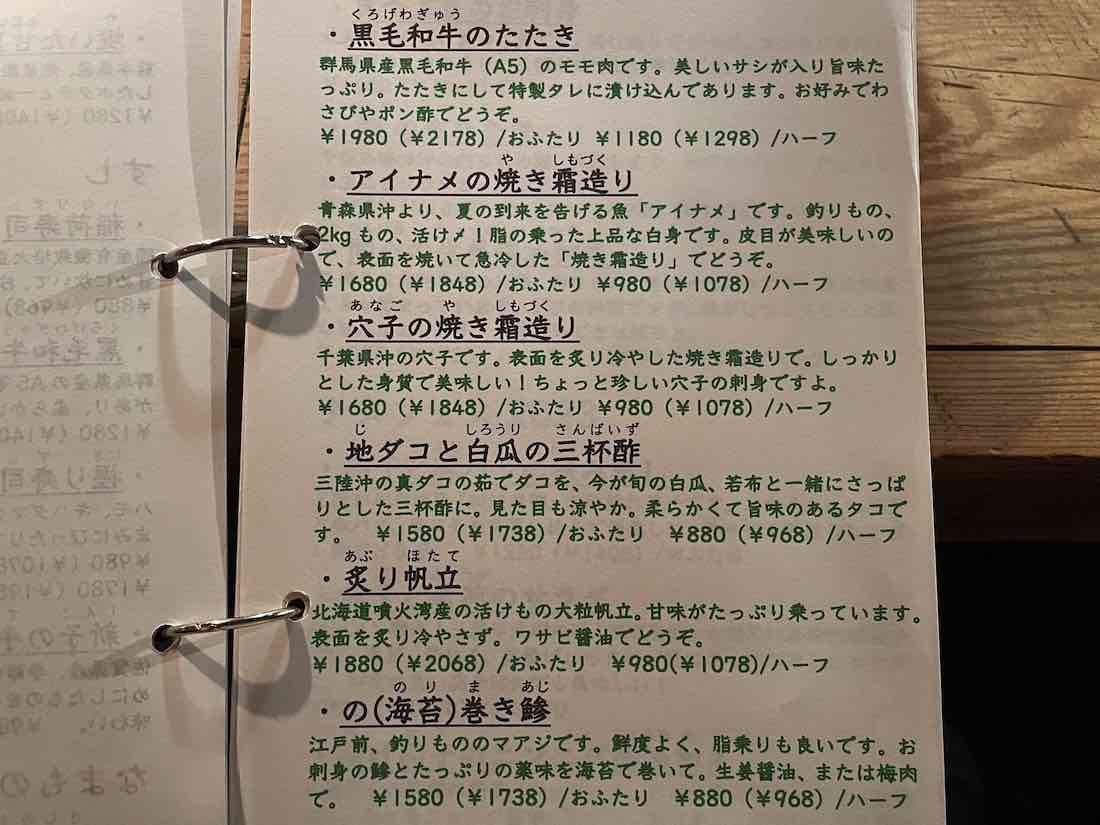 くろげわぎゅう
・黒毛和牛のたたき
群馬県産黒毛和牛（A5）のモモ肉です。美しいサシが入り旨味た
っぷり。たたきにして特製タレに漬け込んであります。お好みでわ
さびやポン酢でどうぞ。
￥1980（￥2178）/おふたり ￥1180（￥1298）/ハーフ
や しもづく
・アイナメの焼き霜造り
青森県沖より、夏の到来を告げる魚「アイナメ」です。釣りもの、
2kgもの、活け〆！脂の乗った上品な白身です。皮目が美味しいの
で、表面を焼いて急冷した「焼き霜造り」でどうぞ。
￥1680（￥1848）/おふたり ￥980（￥1078）/ハーフ
あなご や しもづく
・穴子の焼き霜造り
千葉県沖の穴子です。表面を炙り冷やした焼き霜造りで。しっかり
とした身質で美味しい！ちょっと珍しい穴子の刺身ですよ。
￥1680（￥1848）/おふたり ￥980（￥1078）/ハーフ
じ しろうり さんばいず
・地ダコと白瓜の三杯酢
三陸沖の真ダコの茹でダコを、今が旬の白瓜、若布と一緒にさっぱ
りとした三杯酢に。見た目も涼やか。柔らかくて旨味のあるタコで
す。 ￥1580（￥1738）/おふたり ￥880（￥968）/ハーフ
あぶ ほたて
・炙り帆立
北海道噴火湾産の活けもの大粒帆立。甘味がたっぷり乗っています。
表面を炙り冷やさず。ワサビ醤油でどうぞ。
￥1880（￥2068）/おふたり ￥980(￥1078)/ハーフ
のり ま あじ
・の(海苔)巻き鰺
江戸前、釣りもののマアジです。鮮度よく、脂乗りも良いです。お
刺身の鰺とたっぷりの薬味を海苔で巻いて。生姜醤油、または梅肉
で。 ￥1580（￥1738）/おふたり ￥880（￥968）/ハーフ